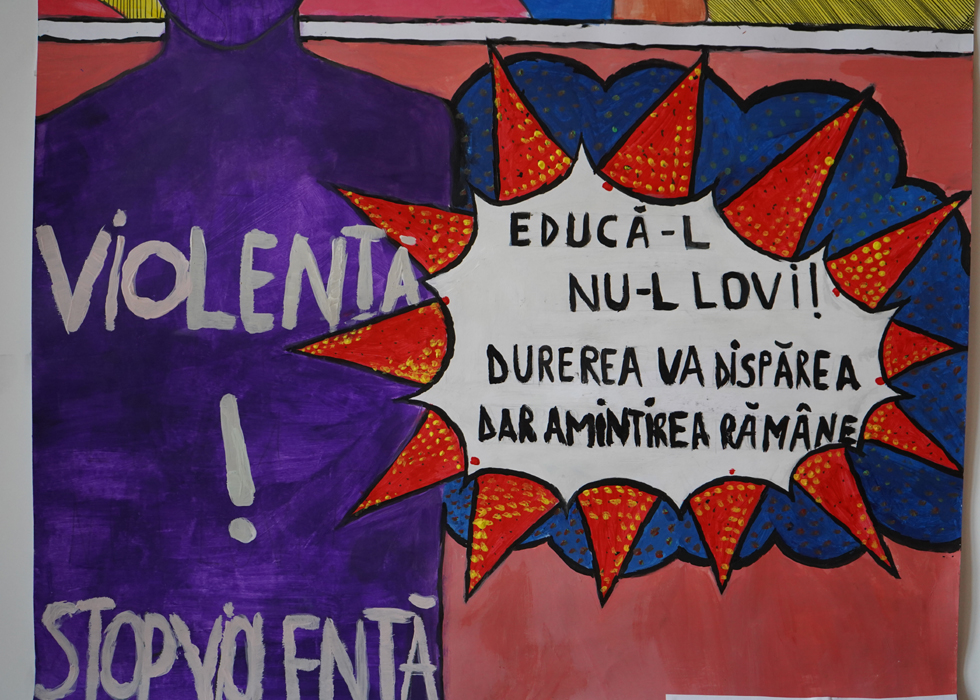 ViOLENȚĂ
!
STOP ViOLENTĂ
EDUCĂ-L
NU-L LOVi!
DUREREA VA DiSPĂREA
DAR AMiNTiREA RĂMÂNE